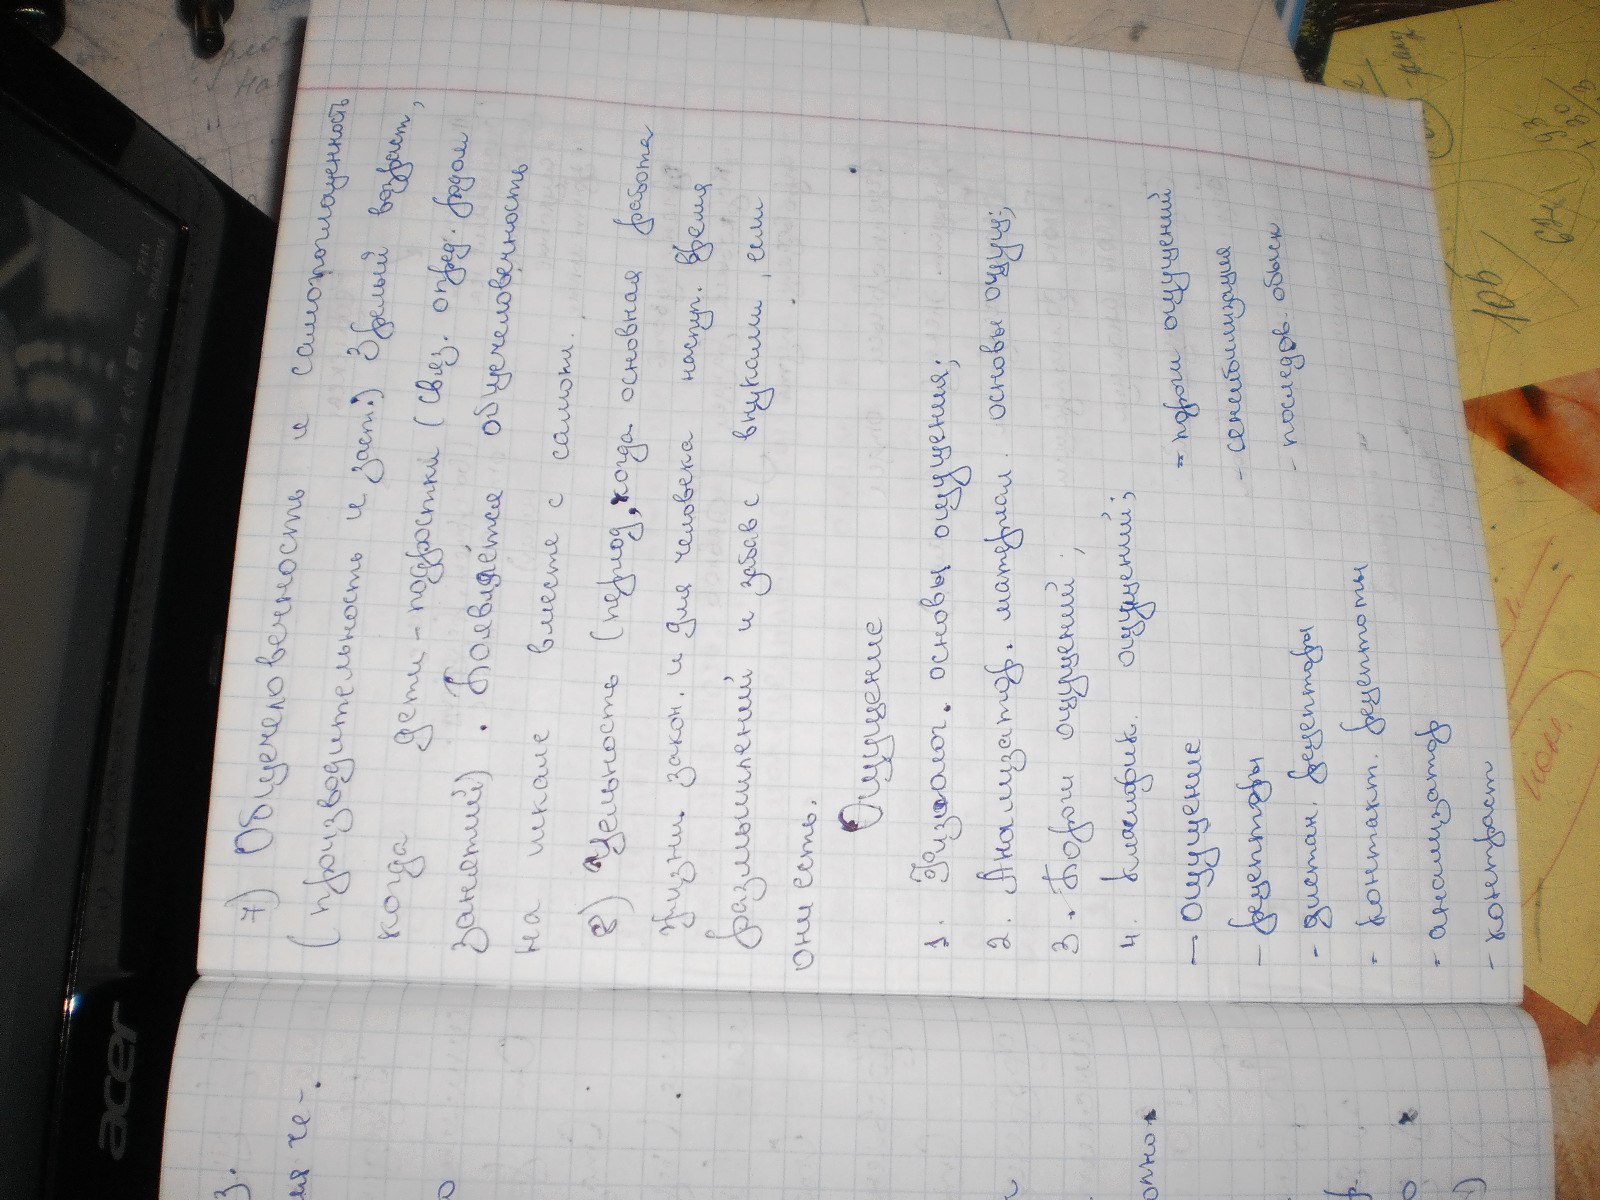 7) Общечеловечность и самопоглощенность
(производительность и заст.) Зрелый возраст,
когда дети-подростки (связ. опред. родом
занятий). Появляется общечеловечность
на шкале вместе с самопогл.
8) Цельность (период, когда основная работа
жизни закон. и для человека наступ. время
размышлений и забав с внуками, если
они есть.
Ощущение
1. Физиолог. основы ощущения;
2. Анализатор. материал. основы ощущ;
3. Пороги ощущений;
4. Классифик. ощущений;
- ощущение
- рецепторы
- дистан. рецепторы
- контакт. рецепторы
- анализатор
- контраст
- пороги ощущений
- сенсибилизация
- последов. образ
acer